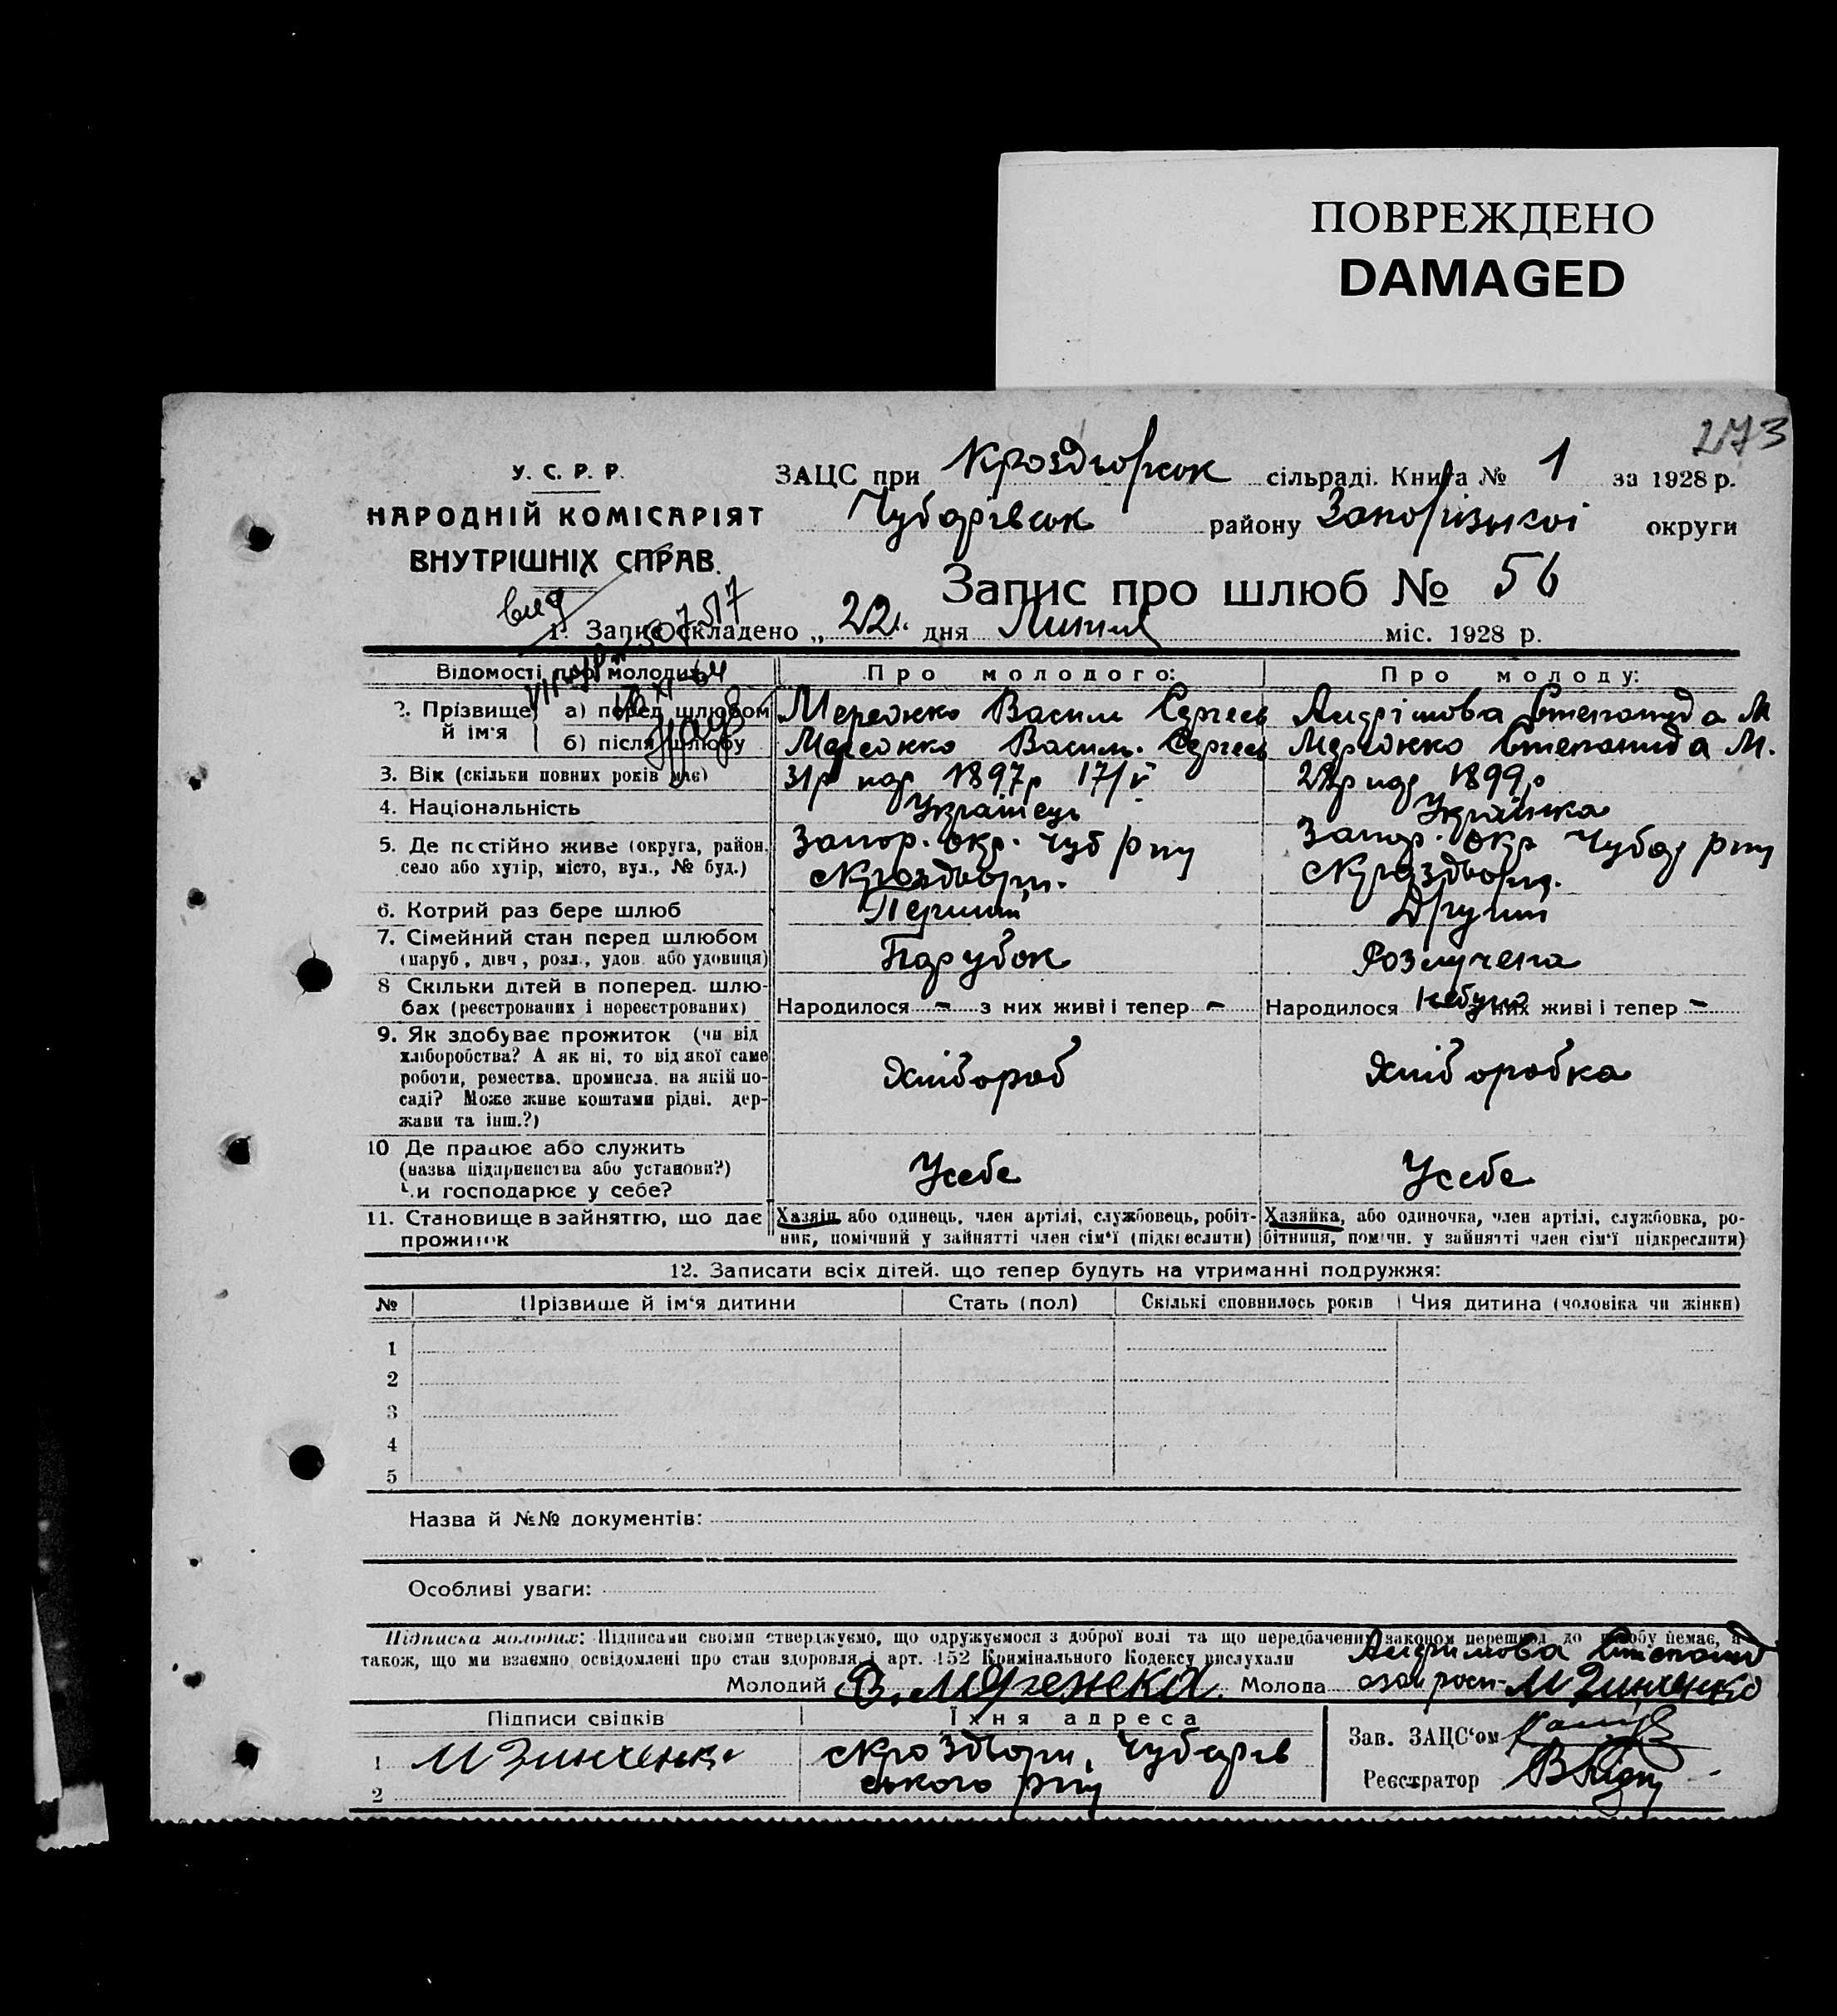 ПОВРЕЖДЕНО
DAMAGED
273
У. С. Р. Р.
НАРОДНІЙ КОМІСАРІЯТ
ВНУТРІШНІХ СПРАВ.
ЗАЦС при Кроздорсок сільраді. Книга № 1 за 1928 р.
Чубарівсок району Запорізькоі округи
Запис про шлюб № 56
1. Запис складено „22“ дня Липня міс. 1928 р.
Відомості про молодих
Про молодого:
Про молоду:
2. Прізвище й ім'я
а) перед шлюбом
Василь Сергеев
Степанида М
б) після шлюбу
Василь Сергеев
Степанида М.
3. Вік (скільки повних років має)
31р нар 1897р 17/V
нар 1899р
4. Національність
Українець
Українка
5. Де постійно живе (округа, район, село або хутір, місто, вул., № буд.)
Запор. окр. Чуб р-ну
Запор. окр Чубар р-ну
6. Котрий раз бере шлюб
Перший
Другий
7. Сімейний стан перед шлюбом
(паруб., дівч., розл., удов. або удовиця)
Парубок
Розлучена
8 Скільки дітей в поперед. шлю-
бах (реєстрованих і нереєстрованих)
Народилося - з них живі і тепер -
Народилося небуло них живі і тепер -
9. Як здобуває прожиток (чи від
хліборобства? А як ні, то від якої саме
роботи, ремества, промисла, на якій по-
саді? Може живе коштами рідні, дер-
жави та інш.?)
Хлібороб
Хліборобка
10 Де працює або служить
(назва підприємства або установи?)
Чи господарює у себе?
Усебе
Усебе
11. Становище в зайняттю, що дає
прожиток
Хазяїн, або одинець, член артілі, службовець, робіт-
ник, помічний у зайнятті член сім'ї (підкреслити)
Хазяйка, або одиночка, член артілі, службовка, ро-
бітниця, помічн. у зайнятті член сім'ї підкреслити)
12. Записати всіх дітей, що тепер будуть на утриманні подружжя:
№ Прізвище й ім'я дитини Стать (пол) Скількі сповнилось років Чия дитина (чоловіка чи жінки)
1
2
3
4
5
Назва й №№ документів:
Особливі уваги:
Підписка молодих: Підписами своїми стверджуємо, що одружуємося з доброї волі та що передбачених законом перешкод до шлюбу немає, а
також, що ми взаємно освідомлені про стан здоровля і арт. 152 Кримінального Кодексу вислухали
Молодий
Молода
М Зинченко
Підписи свідків
Їхня адреса
1 М Зинченко
Чубарів
ського р-ну
2
Зав. ЗАЦС'ом
Реєстратор